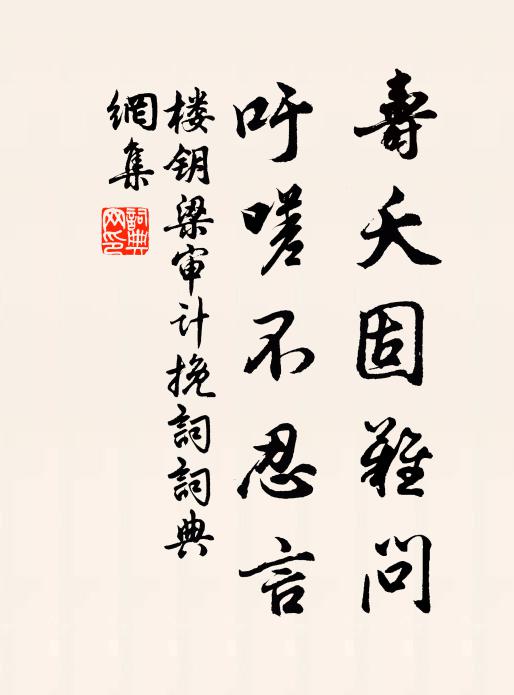 壽夭固難問
吁嗟不忍言
楼钥梁审计挽詞詞典
網集
詞典
网印